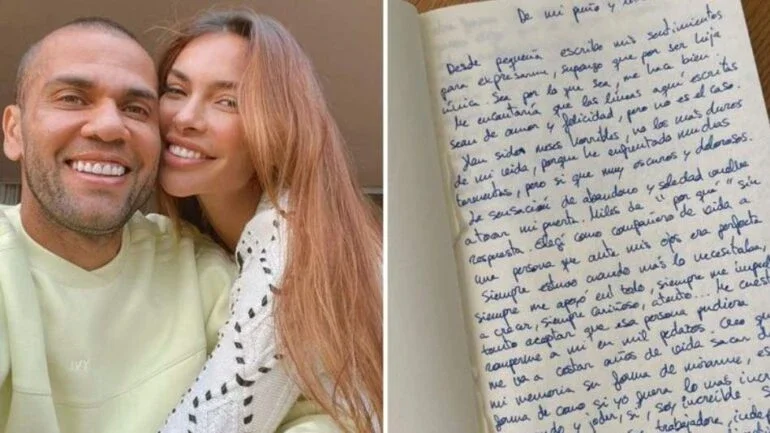 De mi puño y
Desde pequeña escribo mis sentimientos
para expresarme, supongo que por ser hija
única. Sea por lo que sea, me hace bien.
Me encantaría que las líneas aquí escritas
sean de amor y felicidad, pero no es el caso.
Han sido meses horribles, no los más duros
de mi vida, porque he enfrentado muchas
tormentas, pero sí que muy oscuros y dolorosos.
La sensación de abandono y soledad
a tocar mi puerta. Miles de "por qué" sin
respuesta. Elegí como compañero de vida a
una persona que ante mis ojos era perfecta
siempre estuvo cuando más lo necesitaba,
siempre me apoyó en todo, siempre me
a crear, siempre cariñoso, atento... Me
tanto aceptar que esa persona pudiera
romperme a mí en mil pedazos. Creo
me va a costar años de vida sacar
mi memoria su forma de mirarme,
forma de como si yo fuera lo más
y joder, sí, soy increíble.
trabajadora,